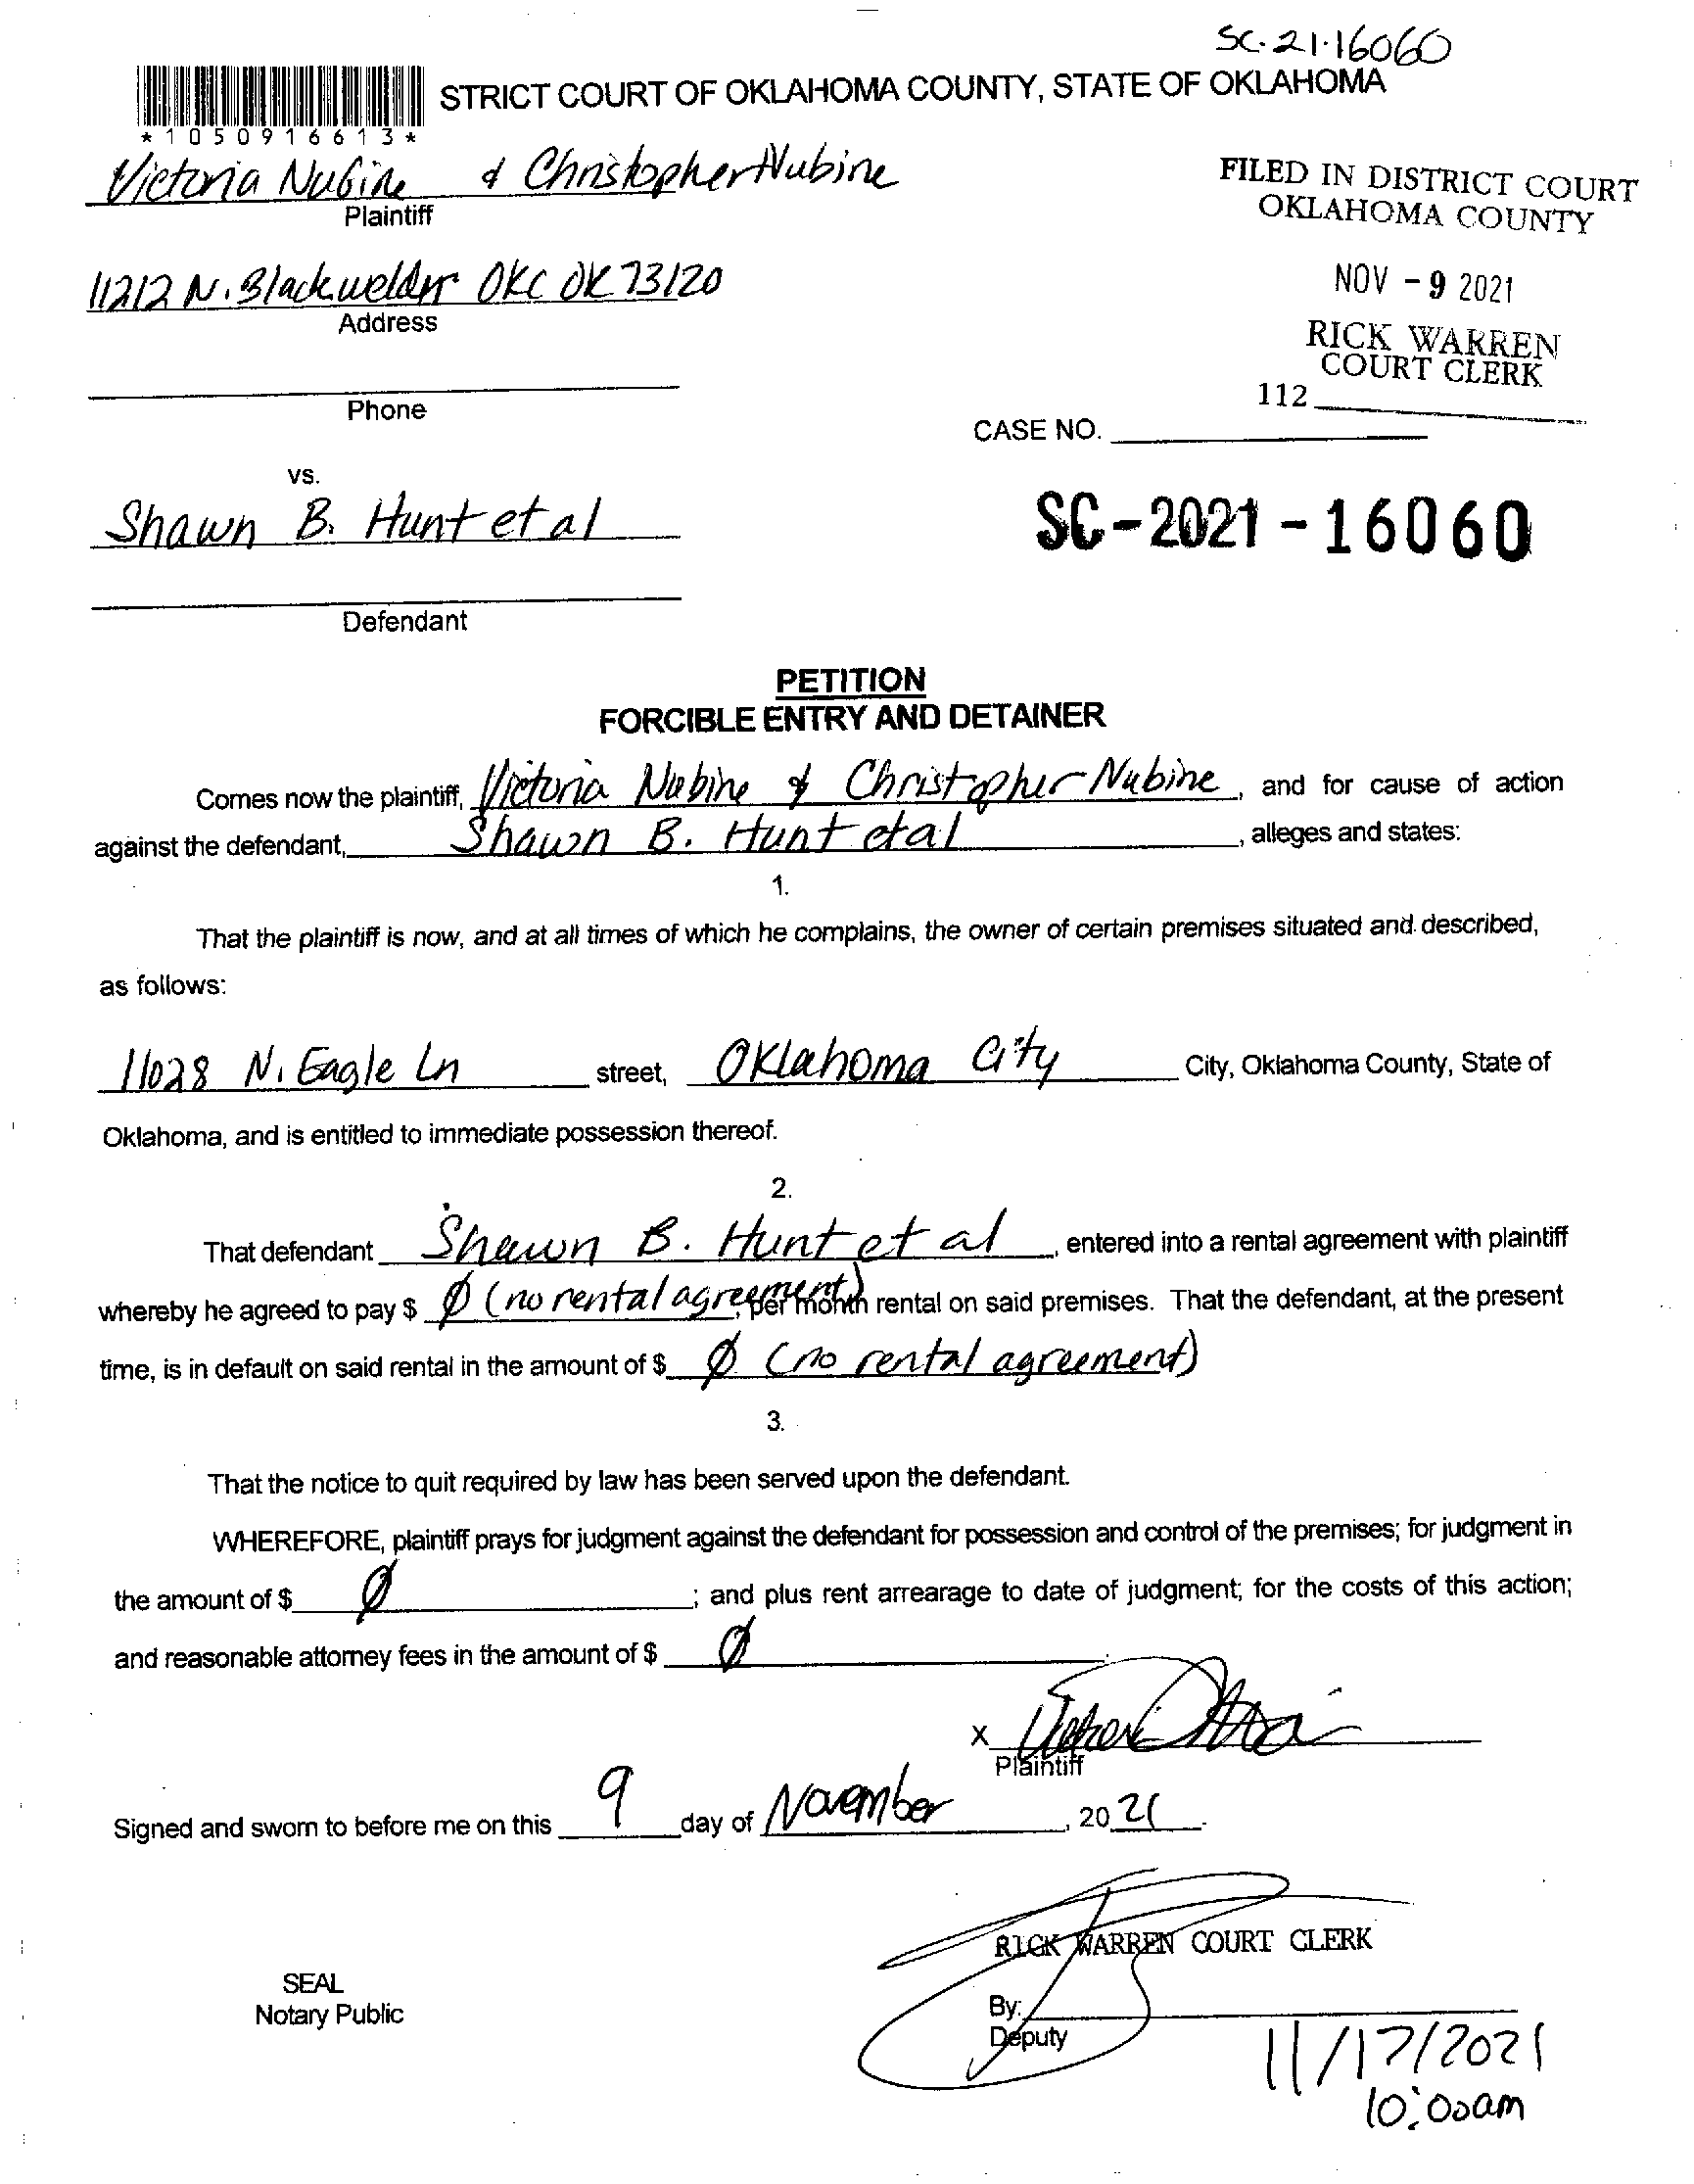 SC-21-16060
STRICT COURT OF OKLAHOMA COUNTY, STATE OF OKLAHOMA
*1050916613*
Victoria Nubine & Christopher Nubine
Plaintiff
FILED IN DISTRICT COURT
OKLAHOMA COUNTY
11212 N. Blackwelder OKC OK 73120
Address
NOV - 9 2021
RICK WARREN
COURT CLERK
112
Phone
CASE NO.
vs.
Shawn B. Hunt et al
SC-2021-16060
Defendant
PETITION
FORCIBLE ENTRY AND DETAINER
Comes now the plaintiff, Victoria Nubine & Christopher Nubine, and for cause of action
against the defendant, Shawn B. Hunt et al, alleges and states:
1.
That the plaintiff is now, and at all times of which he complains, the owner of certain premises situated and described,
as follows:
11028 N. Eagle Ln street, Oklahoma City City, Oklahoma County, State of
Oklahoma, and is entitled to immediate possession thereof.
2.
That defendant Shawn B. Hunt et al, entered into a rental agreement with plaintiff
whereby he agreed to pay $ Ø (no rental agreement), per month rental on said premises. That the defendant, at the present
time, is in default on said rental in the amount of $ Ø (no rental agreement)
3.
That the notice to quit required by law has been served upon the defendant.
WHEREFORE, plaintiff prays for judgment against the defendant for possession and control of the premises; for judgment in
the amount of $ Ø; and plus rent arrearage to date of judgment; for the costs of this action;
and reasonable attorney fees in the amount of $ Ø.
X
Plaintiff
Signed and sworn to before me on this 9 day of November, 2021.
RICK WARREN COURT CLERK
SEAL
Notary Public
By:
Deputy
11/17/2021
10:00am